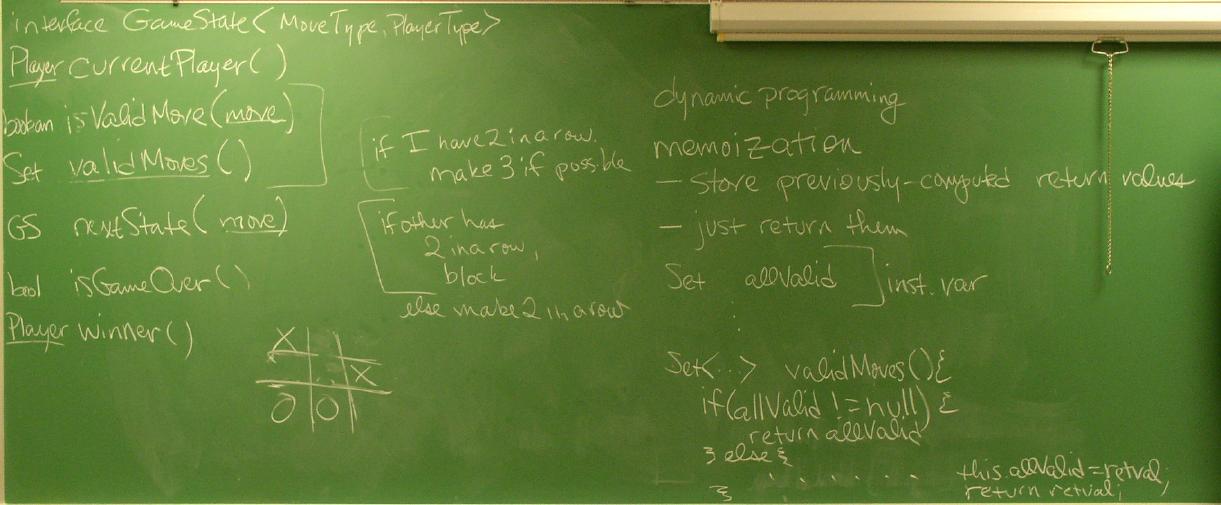 interface GameState<MoveType, PlayerType>
Player currentPlayer()
boolean isValidMove(move)
Set validMoves()
GS nextState(move)
bool isGameOver()
Player winner()
if I have 2 in a row.
make 3 if possible
if other has
2 in a row,
block
else make 2 in a row
X
X
O O
dynamic programming
memoization
- Store previously-computed return values
- just return them
Set allValid ] inst. var
Set<...> validMoves(){
if(allValid != null) {
return allValid
} else {
. . . . . . this.allValid = retval;
} return retval;